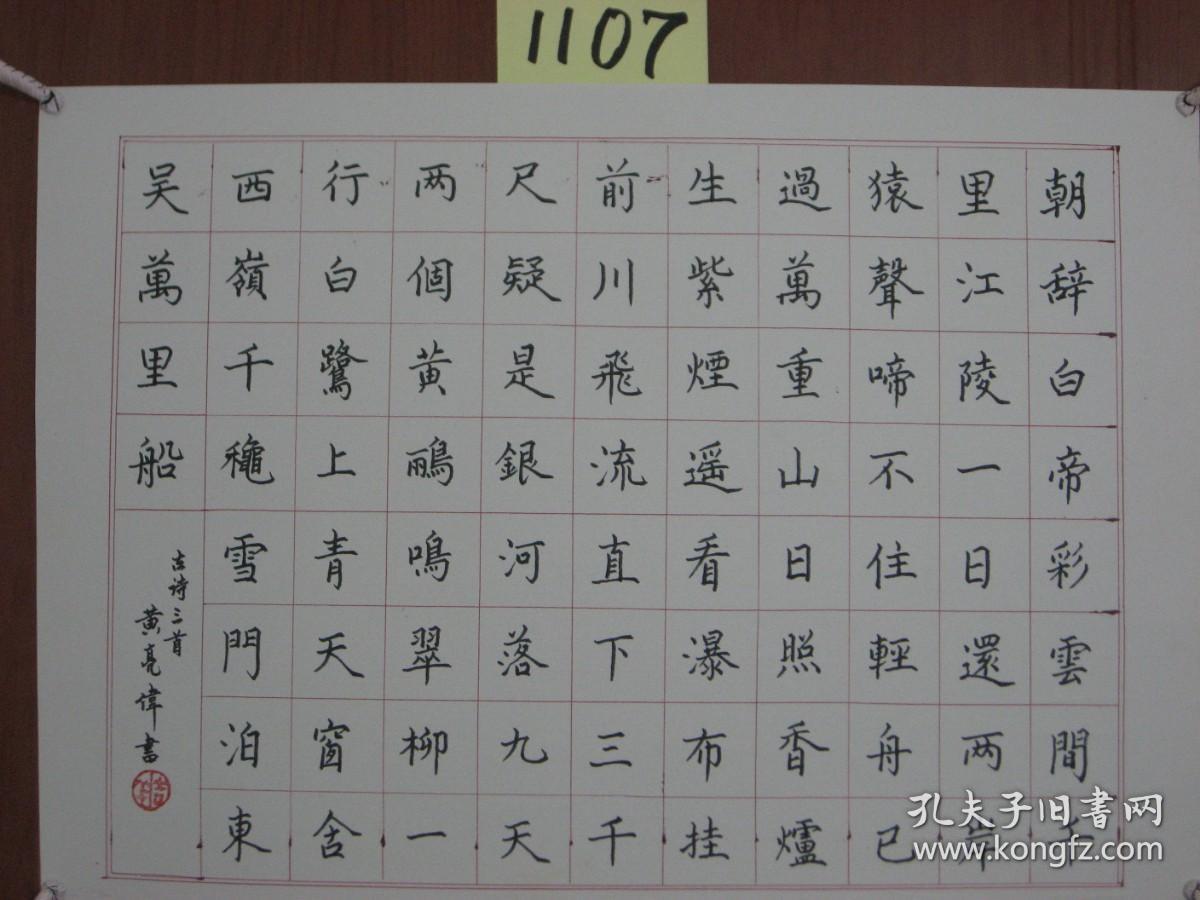 1107
朝辞白帝彩雲間千
里江陵一日還两岸
猿聲啼不住輕舟已
過萬重山日照香爐
生紫煙遥看瀑布挂
前川飛流直下三千
尺疑是銀河落九天
两個黄鸝鳴翠柳一
行白鷺上青天窗含
西嶺千穐雪門泊東
吴萬里船
古诗三首
黄亮偉書
孔夫子旧書网
www.kongfz.com